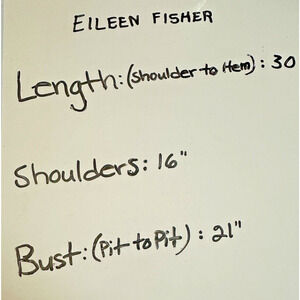 EILEEN FISHER
Length:(Shoulder to Hem): 30
Shoulders: 16"
Bust:(Pit to Pit): 21"